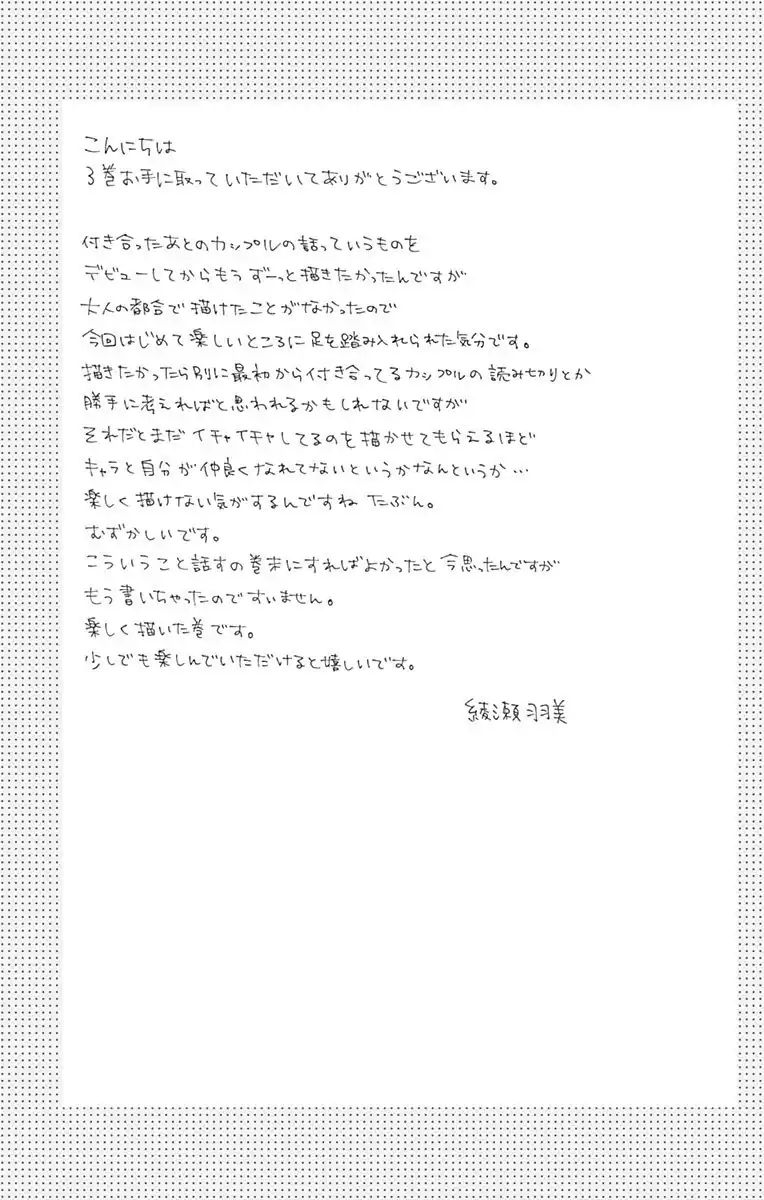 こんにちは
3巻お手に取っていただいてありがとうございます。
付き合ったあとのカップルの話っていうものを
デビューしてからもうずーっと描きたかったんですが
大人の都合で描けたことがなかったので
今回はじめて楽しいところに足を踏み入れられた気分です。
描きたかったら別に最初から付き合ってるカップルの読み切りとか
勝手に考えればと思われるかもしれないですが
それだとまだイチャイチャしてるのを描かせてもらえるほど
キャラと自分が仲良くなれてないというかなんというか…
楽しく描けない気がするんですね たぶん。
むずかしいです。
こういうこと話すの巻末にすればよかったと今思ったんですが
もう書いちゃったのですいません。
楽しく描いた巻です。
少しでも楽しんでいただけると嬉しいです。
綾瀬羽美